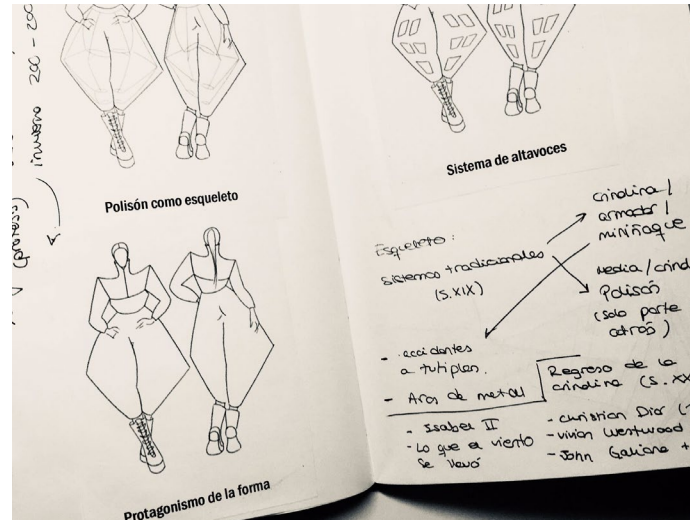 invierno 200 - 200
Polisón como esqueleto
Protagonismo de la forma
Sistema de altavoces
Esqueleto:
sistemas tradicionales
(S.XIX)
crinolina /
armador /
miriñaque
media / crind
Polisón
(solo parte
atrás)
- accidentes
a tutiplen.
- Aros de metal
- Isabel II
- Lo que el viento
se llevó
Regreso de la
crinolina (S. XX
- Christian Dior
- vivian Westwood
- John Galiano +